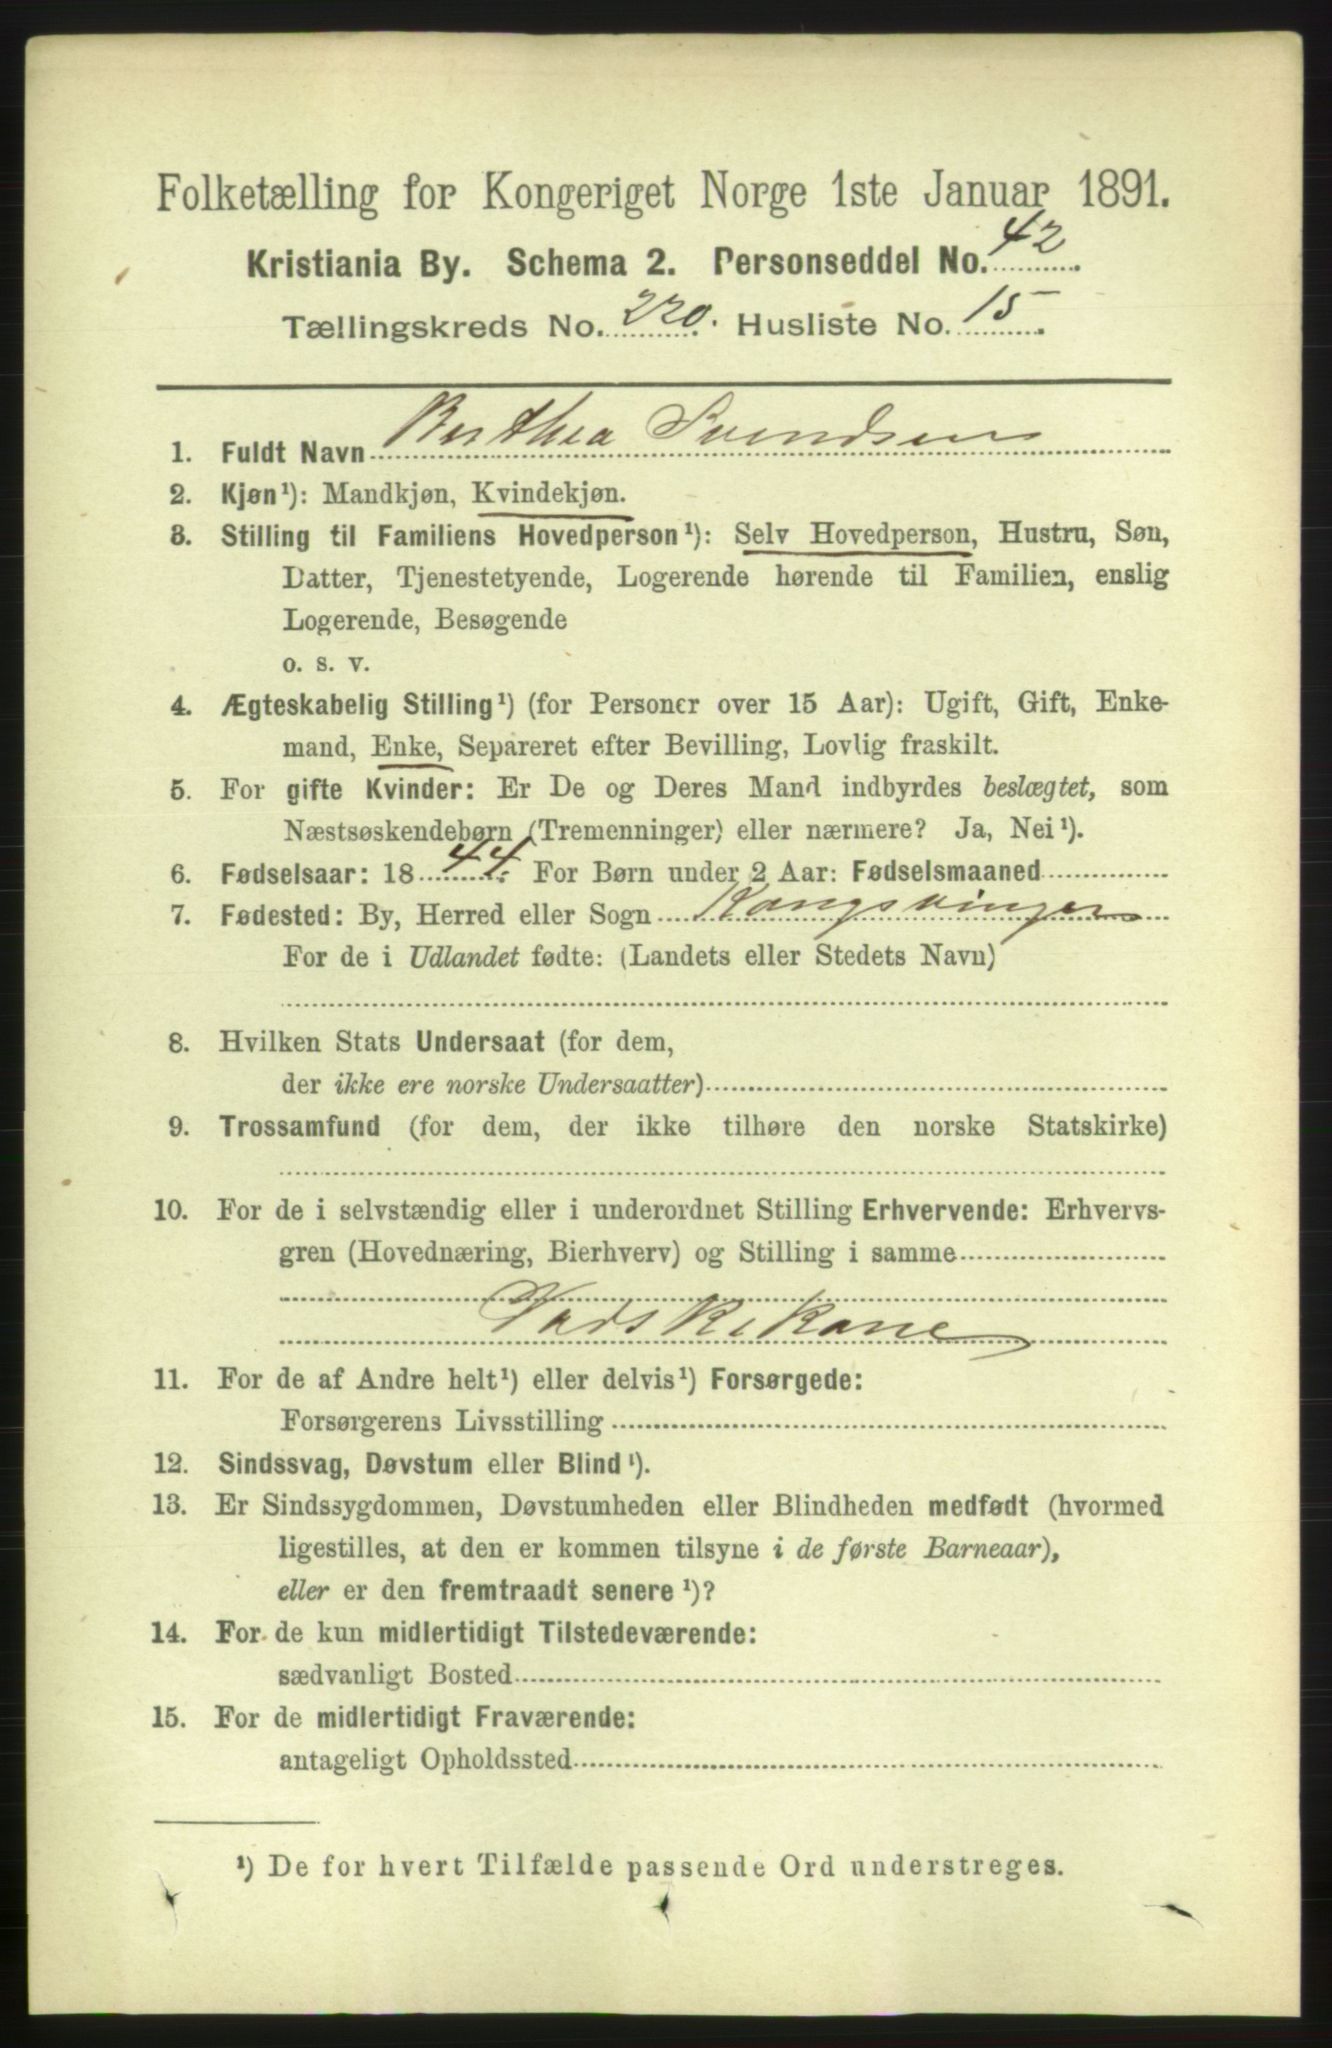 Folketælling for Kongeriget Norge 1ste Januar 1891.
Kristiania By. Schema 2. Personseddel No. 42
Tællingskreds No. 220. Husliste No. 15.
1. Fuldt Navn Berthea Svendsen
2. Kjøn¹): Mandkjøn, Kvindekjøn.
3. Stilling til Familiens Hovedperson¹): Selv Hovedperson, Hustru, Søn,
Datter, Tjenestetyende, Logerende hørende til Familien, enslig
Logerende, Besøgende
o. s. v.
4. Ægteskabelig Stilling¹) (for Personer over 15 Aar): Ugift, Gift, Enke-
mand, Enke, Separeret efter Bevilling, Lovlig fraskilt.
5. For gifte Kvinder: Er De og Deres Mand indbyrdes beslægtet, som
Næstsøskendebørn (Tremenninger) eller nærmere? Ja, Nei¹).
6. Fødselsaar: 1844. For Børn under 2 Aar: Fødselsmaaned
7. Fødested: By, Herred eller Sogn Kongsvinger
For de i Udlandet fødte: (Landets eller Stedets Navn)
8. Hvilken Stats Undersaat (for dem,
der ikke ere norske Undersaatter)
9. Trossamfund (for dem, der ikke tilhøre den norske Statskirke)
10. For de i selvstændig eller i underordnet Stilling Erhvervende: Erhvervs-
gren (Hovednæring, Bierhverv) og Stilling i samme
Vadskekone
11. For de af Andre helt¹) eller delvis¹) Forsørgede:
Forsørgerens Livsstilling
12. Sindssvag, Døvstum eller Blind¹).
13. Er Sindssygdommen, Døvstumheden eller Blindheden medfødt (hvormed
ligestilles, at den er kommen tilsyne i de første Barneaar),
eller er den fremtraadt senere¹)?
14. For de kun midlertidigt Tilstedeværende:
sædvanligt Bosted
15. For de midlertidigt Fraværende:
antageligt Opholdssted
¹) De for hvert Tilfælde passende Ord understreges.